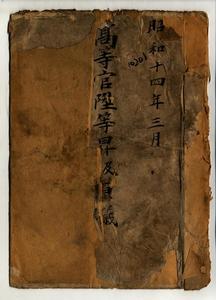 昭和十四年三月
高等官陞等昇及